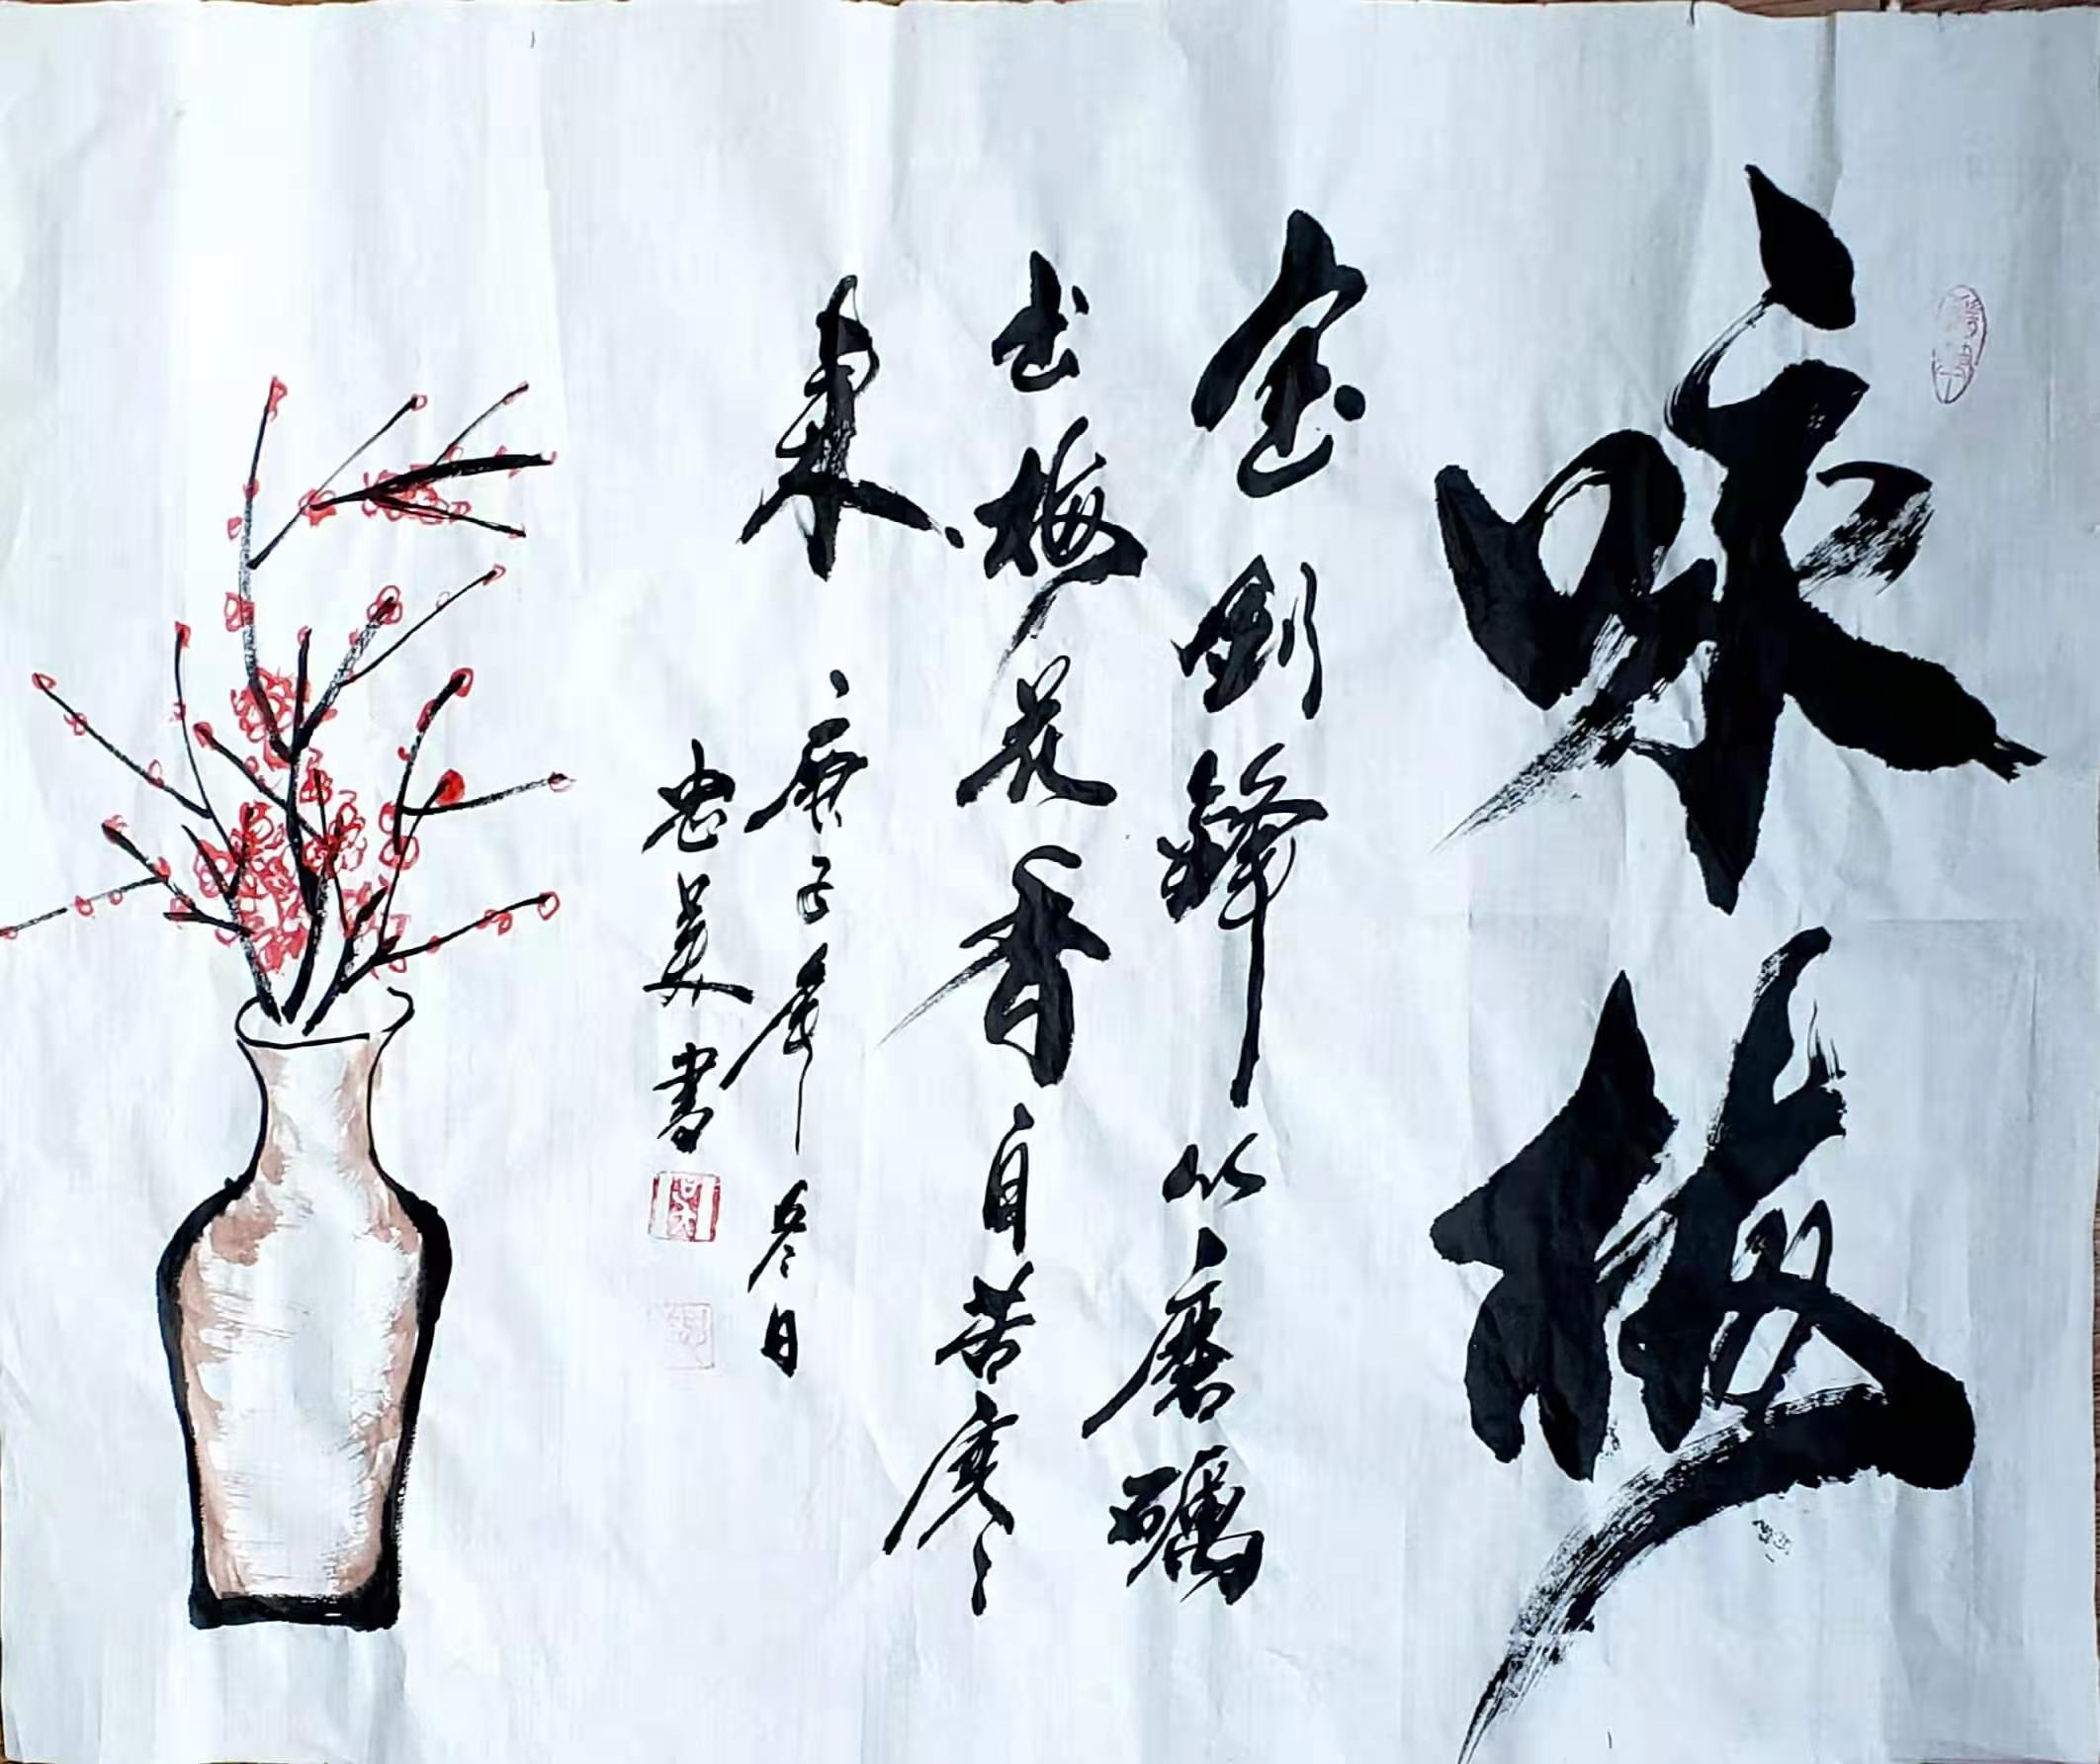 咏梅
宝剑锋从磨礪
出梅花香自苦寒
来 庚子年冬日
忠美書